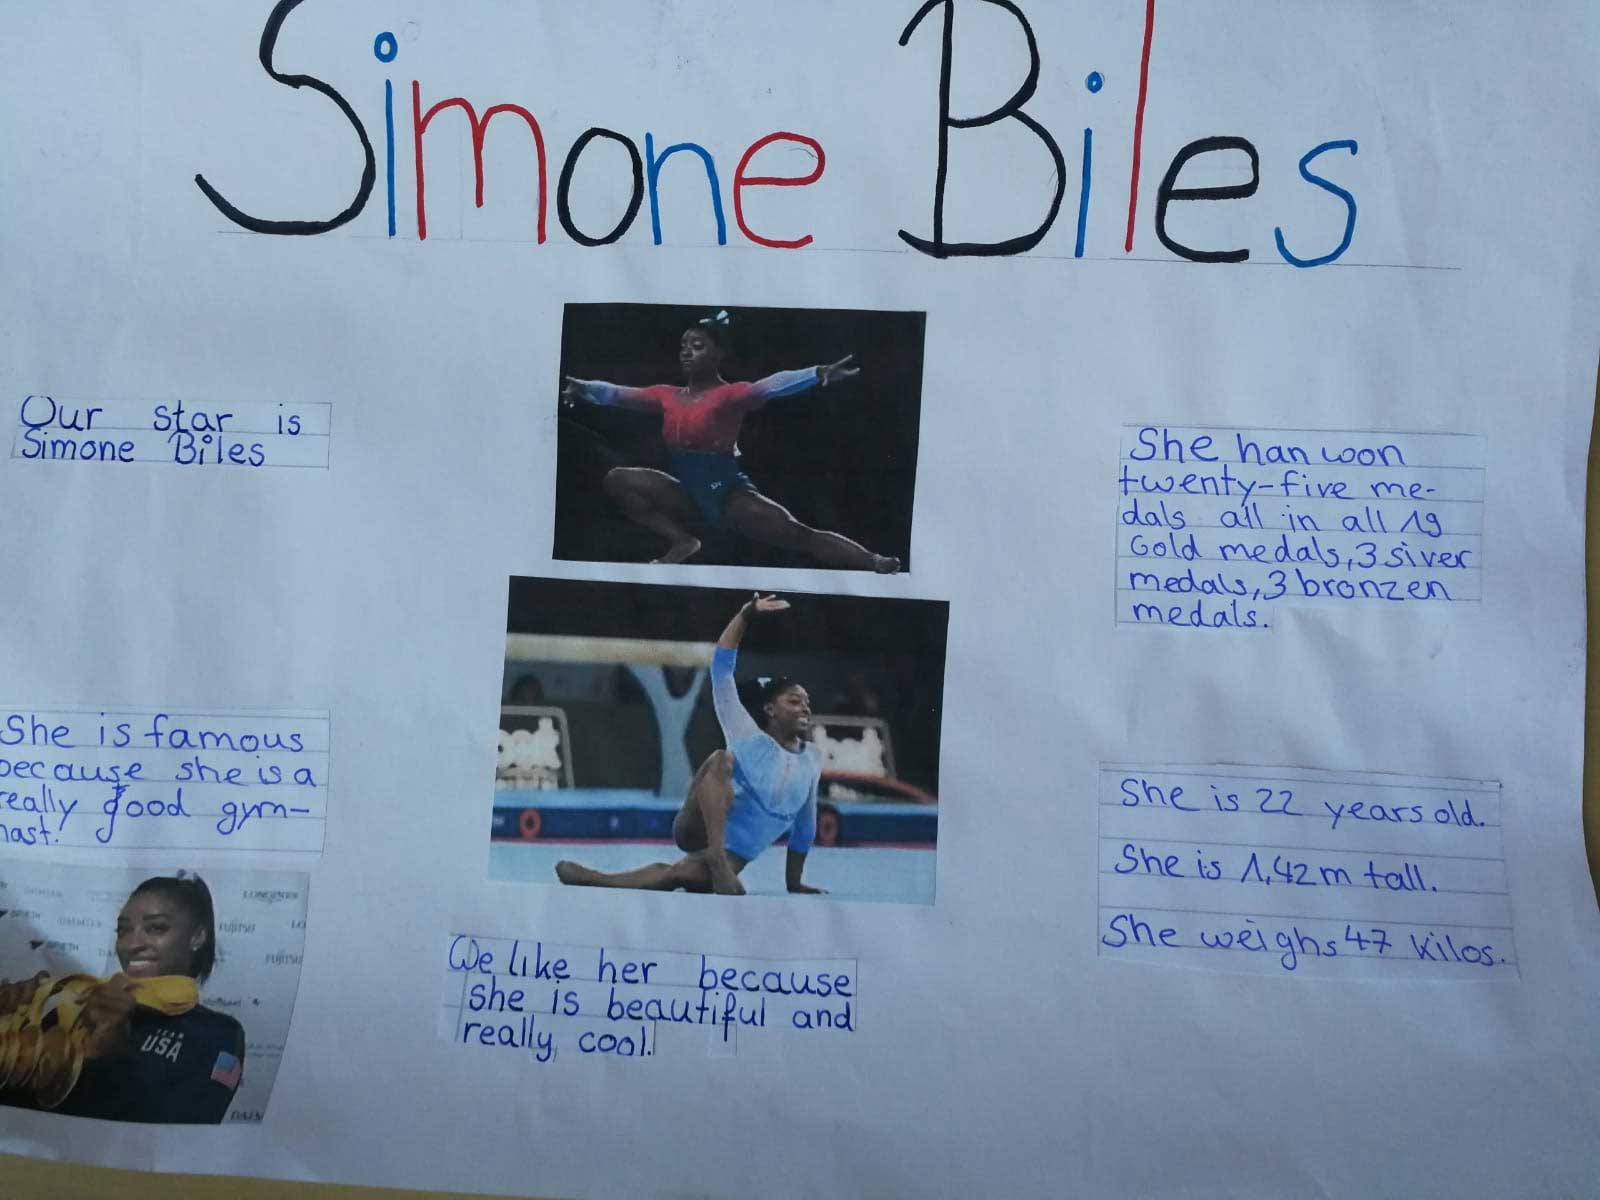 Simone Biles
Our star is
Simone Biles
She han won
twenty-five me-
dals all in all 19
Gold medals, 3 siver
medals, 3 bronzen
medals.
She is famous
because she is a
really good gym-
nast!
She is 22 years old.
She is 1,42 m tall.
She weighs 47 kilos.
We like her because
she is beautiful and
really cool.
LONGINES
FUJITSU
FUJITSU
TEAM
USA